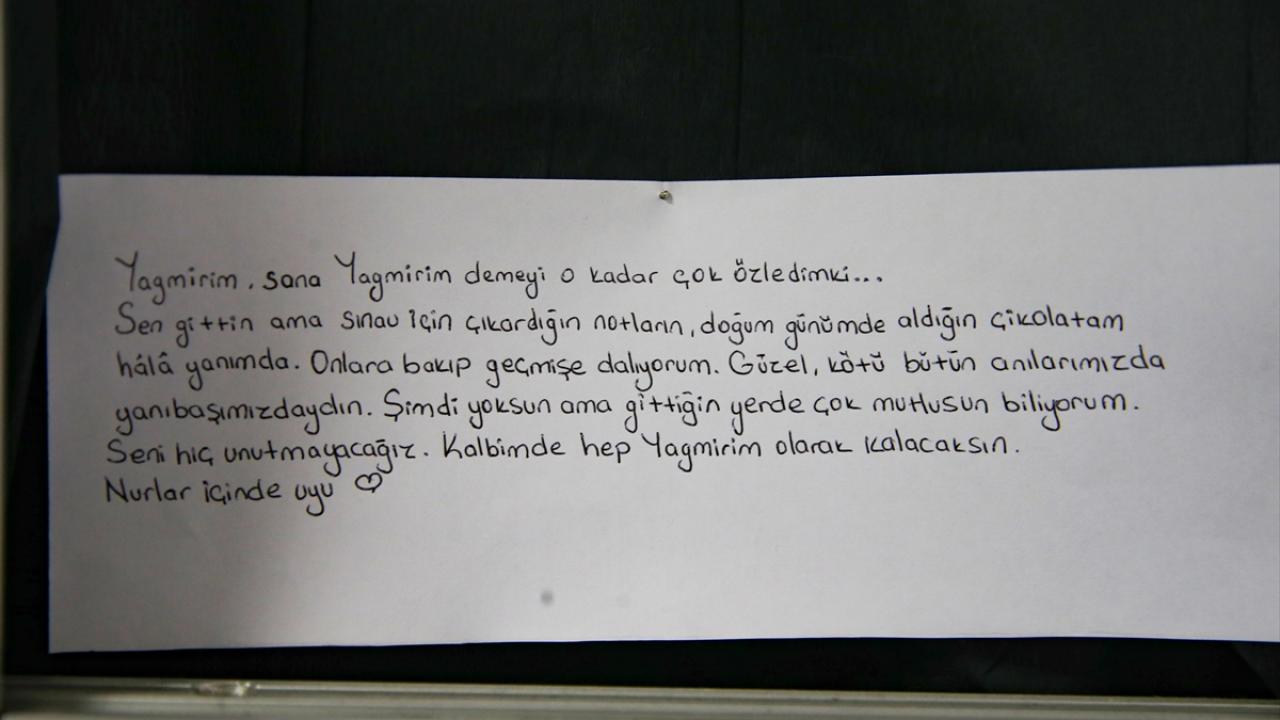 Yagmirim, sana Yagmirim demeyi o kadar çok özledimki...
Sen gittin ama sınav için çıkardığın notların, doğum günümde aldığın çikolatam
hálâ yanımda. Onlara bakıp geçmişe dalıyorum. Güzel, kötü bütün anılarımızda
yanıbaşımızdaydın. Şimdi yoksun ama gittiğin yerde çok mutlusun biliyorum.
Seni hiç unutmayacağız. Kalbimde hep Yagmirim olarak kalacaksın.
Nurlar içinde uyu ♡